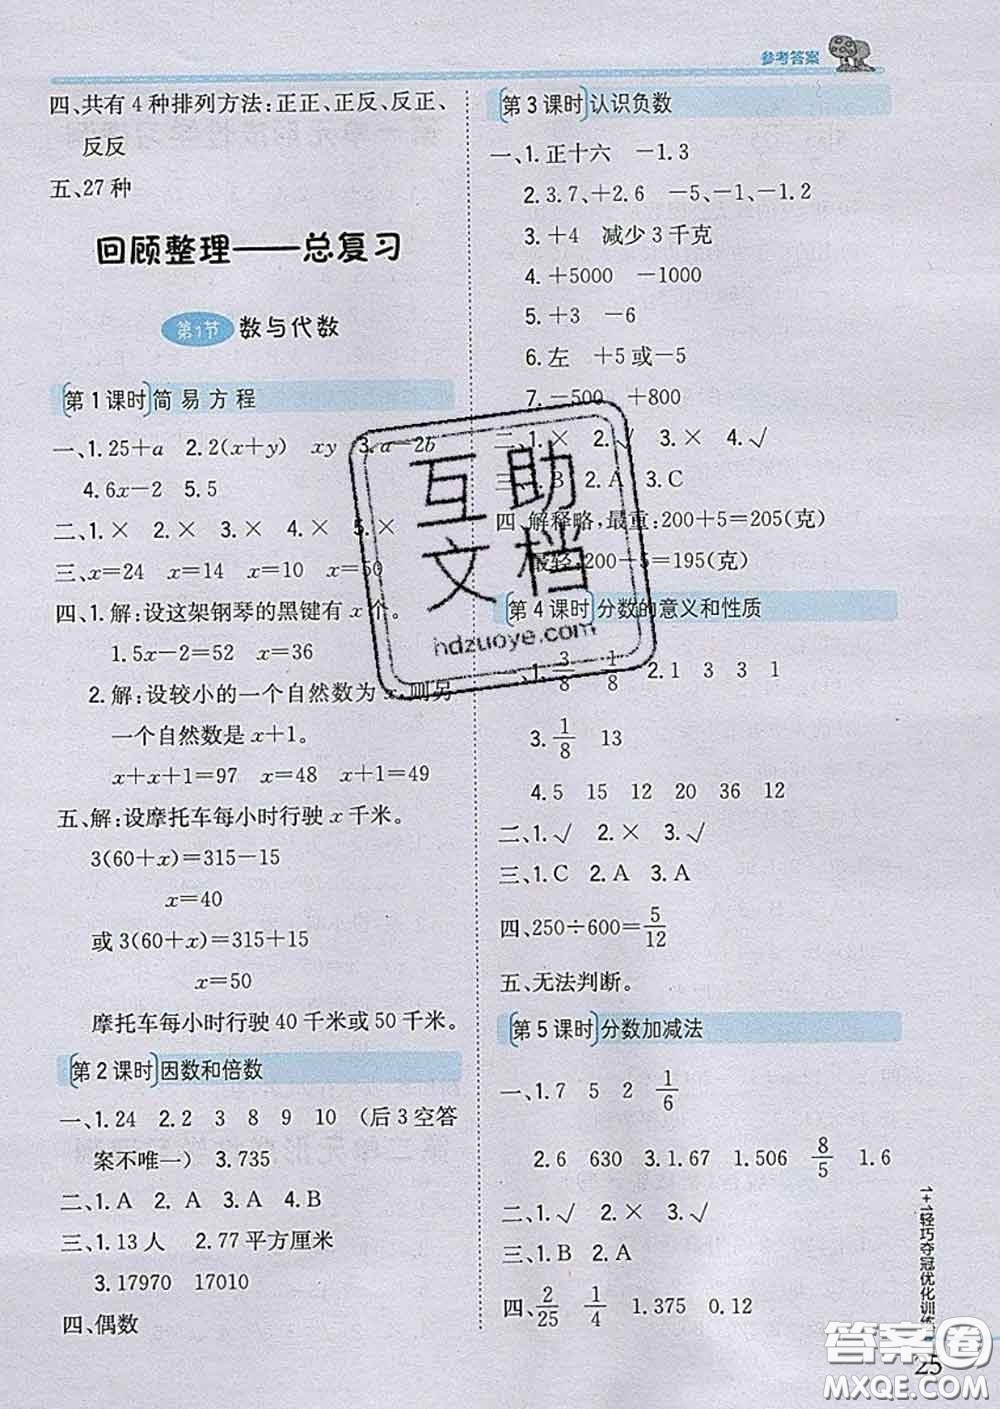 参考答案
四、共有4种排列方法:正正、正反、反正、
反反
五、27种
回顾整理——总复习
第1节 数与代数
第1课时 简易方程
一、1.25+a 2.2(x+y) xy 3.a-2b
4.6x-2 5.5
二、1.× 2.× 3.× 4.× 5.×
三、x=24 x=14 x=10 x=50
四、1.解:设这架钢琴的黑键有x个。
1.5x-2=52 x=36
2.解:设较小的一个自然数为x,则另
一个自然数是x+1。
x+x+1=97 x=48 x+1=49
五、解:设摩托车每小时行驶x千米。
3(60+x)=315-15
x=40
或3(60+x)=315+15
x=50
摩托车每小时行驶40千米或50千米。
第2课时 因数和倍数
一、1.24 2.2 3 8 9 10 (后3空答
案不唯一) 3.735
二、1.A 2.A 3.A 4.B
三、1.13人 2.77平方厘米
3.17970 17010
四、偶数
第3课时 认识负数
一、1.正十六 -1.3
2.3.7、+2.6 -5、-1、-1.2
3.+4 减少3千克
4.+5000 -1000
5.+3 -6
6.左 +5或-5
7.-500 +800
二、1.× 2.√ 3.× 4.√
三、1.B 2.A 3.C
四、解释略,最重:200+5=205(克)
最轻:200-5=195(克)
第4课时 分数的意义和性质
一、1.3/8 1/8 2.1 3 3 1
3.1/8 13
4.5 15 12 20 36 12
二、1.√ 2.× 3.√
三、1.C 2.A 3.A
四、250÷600=5/12
五、无法判断。
第5课时 分数加减法
一、1.7 5 2 1/6
2.6 630 3.1.67 1.506 8/5 1.6
二、1.√ 2.× 3.√
三、1.B 2.A
四、2/25 1/4 1.375 0.12
1+1轻巧夺冠优化训练
25
互助
文档
hdzuoye.com
答案圈
MXQE.COM